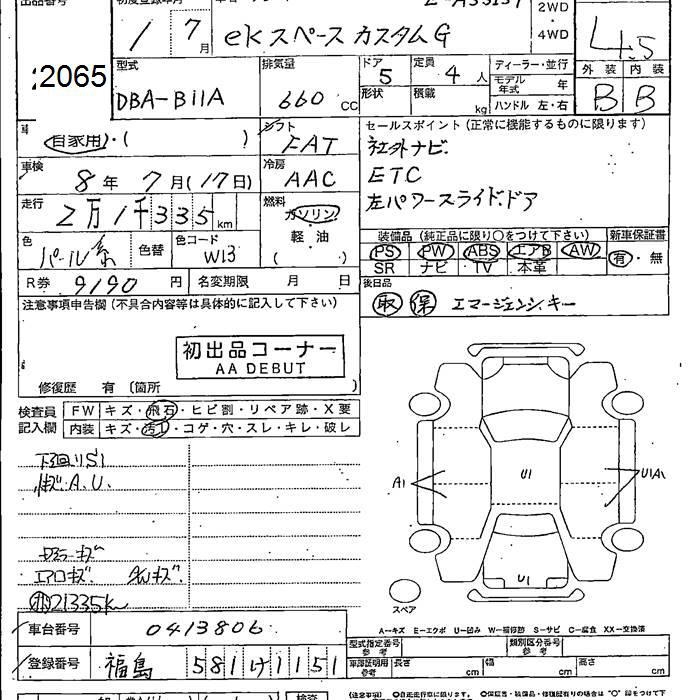 出品番号 初度登録年月
1 7月 ekスペース カスタムG 2WD・4WD 4.5
2065
型式 DBA-B11A
排気量 660 CC
ドア 5 定員 4人
形状 積載 kg
ディーラー・並行
モデル年式 年
ハンドル 左・右
外装 内装
B B
自家用・( )
シフト FAT
セールスポイント (正常に機能するものに限ります)
社外ナビ
ETC
左パワースライドドア
車検 8年 7月(17日)
冷房 AAC
走行 2万1千335km
燃料 ガソリン・軽・油 ( )
色 パール系 色替 色コード W13
装備品 (純正品に限り○をつけて下さい) 新車保証書
PS PW ABS エアB AW 有・無
SR ナビ TV 本革
R券 9190円 名変期限 月 日
後日品
取 保 エマージェンシーキー
注意事項申告欄 (不具合内容等は具体的に記入して下さい)
初出品コーナー
AA DEBUT
修復歴 有 (箇所 )
検査員記入欄 FW キズ・飛石・ヒビ割・リペア跡・X要
内装 キズ・汚れ・コゲ・穴・スレ・キレ・破レ
下廻りS1
A1 U1 U1A1
U1
エアロキズ
21335k
スペア
A－キズ E－エクボ U－凹み W－補修跡 S－サビ C－腐食 XX－交換済
車台番号 0413806
型式指定番号 参考 類別区分番号 参考
登録番号 福島 581け1151
車庫証明用参考 長さ cm 幅 cm 高さ cm